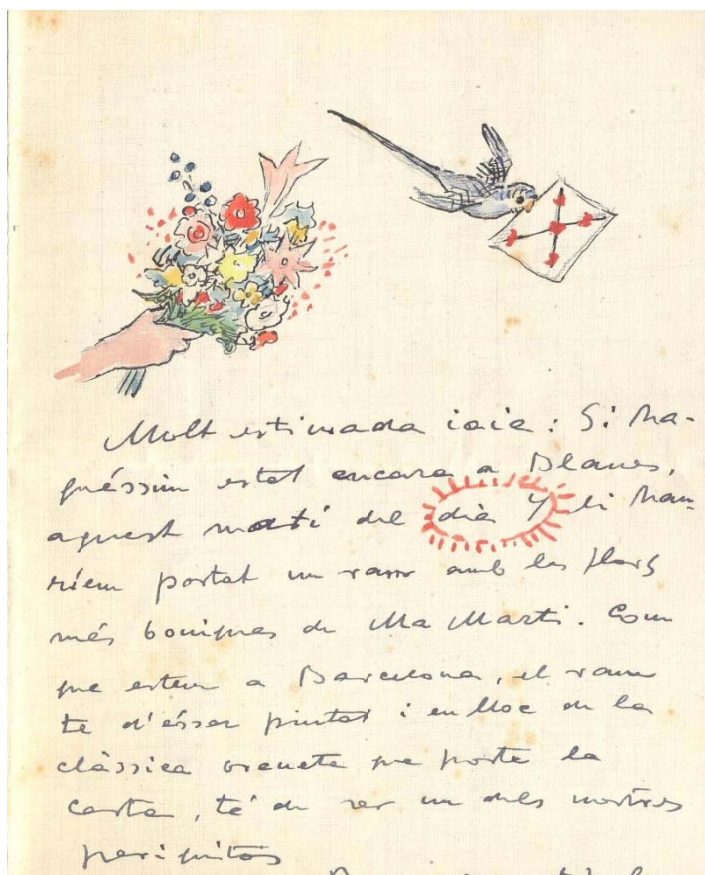 Molt estimada iaia: Si ha-
guéssim estat encara a Blanes,
aquest matí del dia 4 li hau-
ríem portat un ram amb les flors
més boniques de Ma Marti. Com
que estem a Barcelona, el ram
te d'ésser pintat i en lloc de la
clàssica oreneta que porte la
carta, té de ser un dels nostres
periquitos